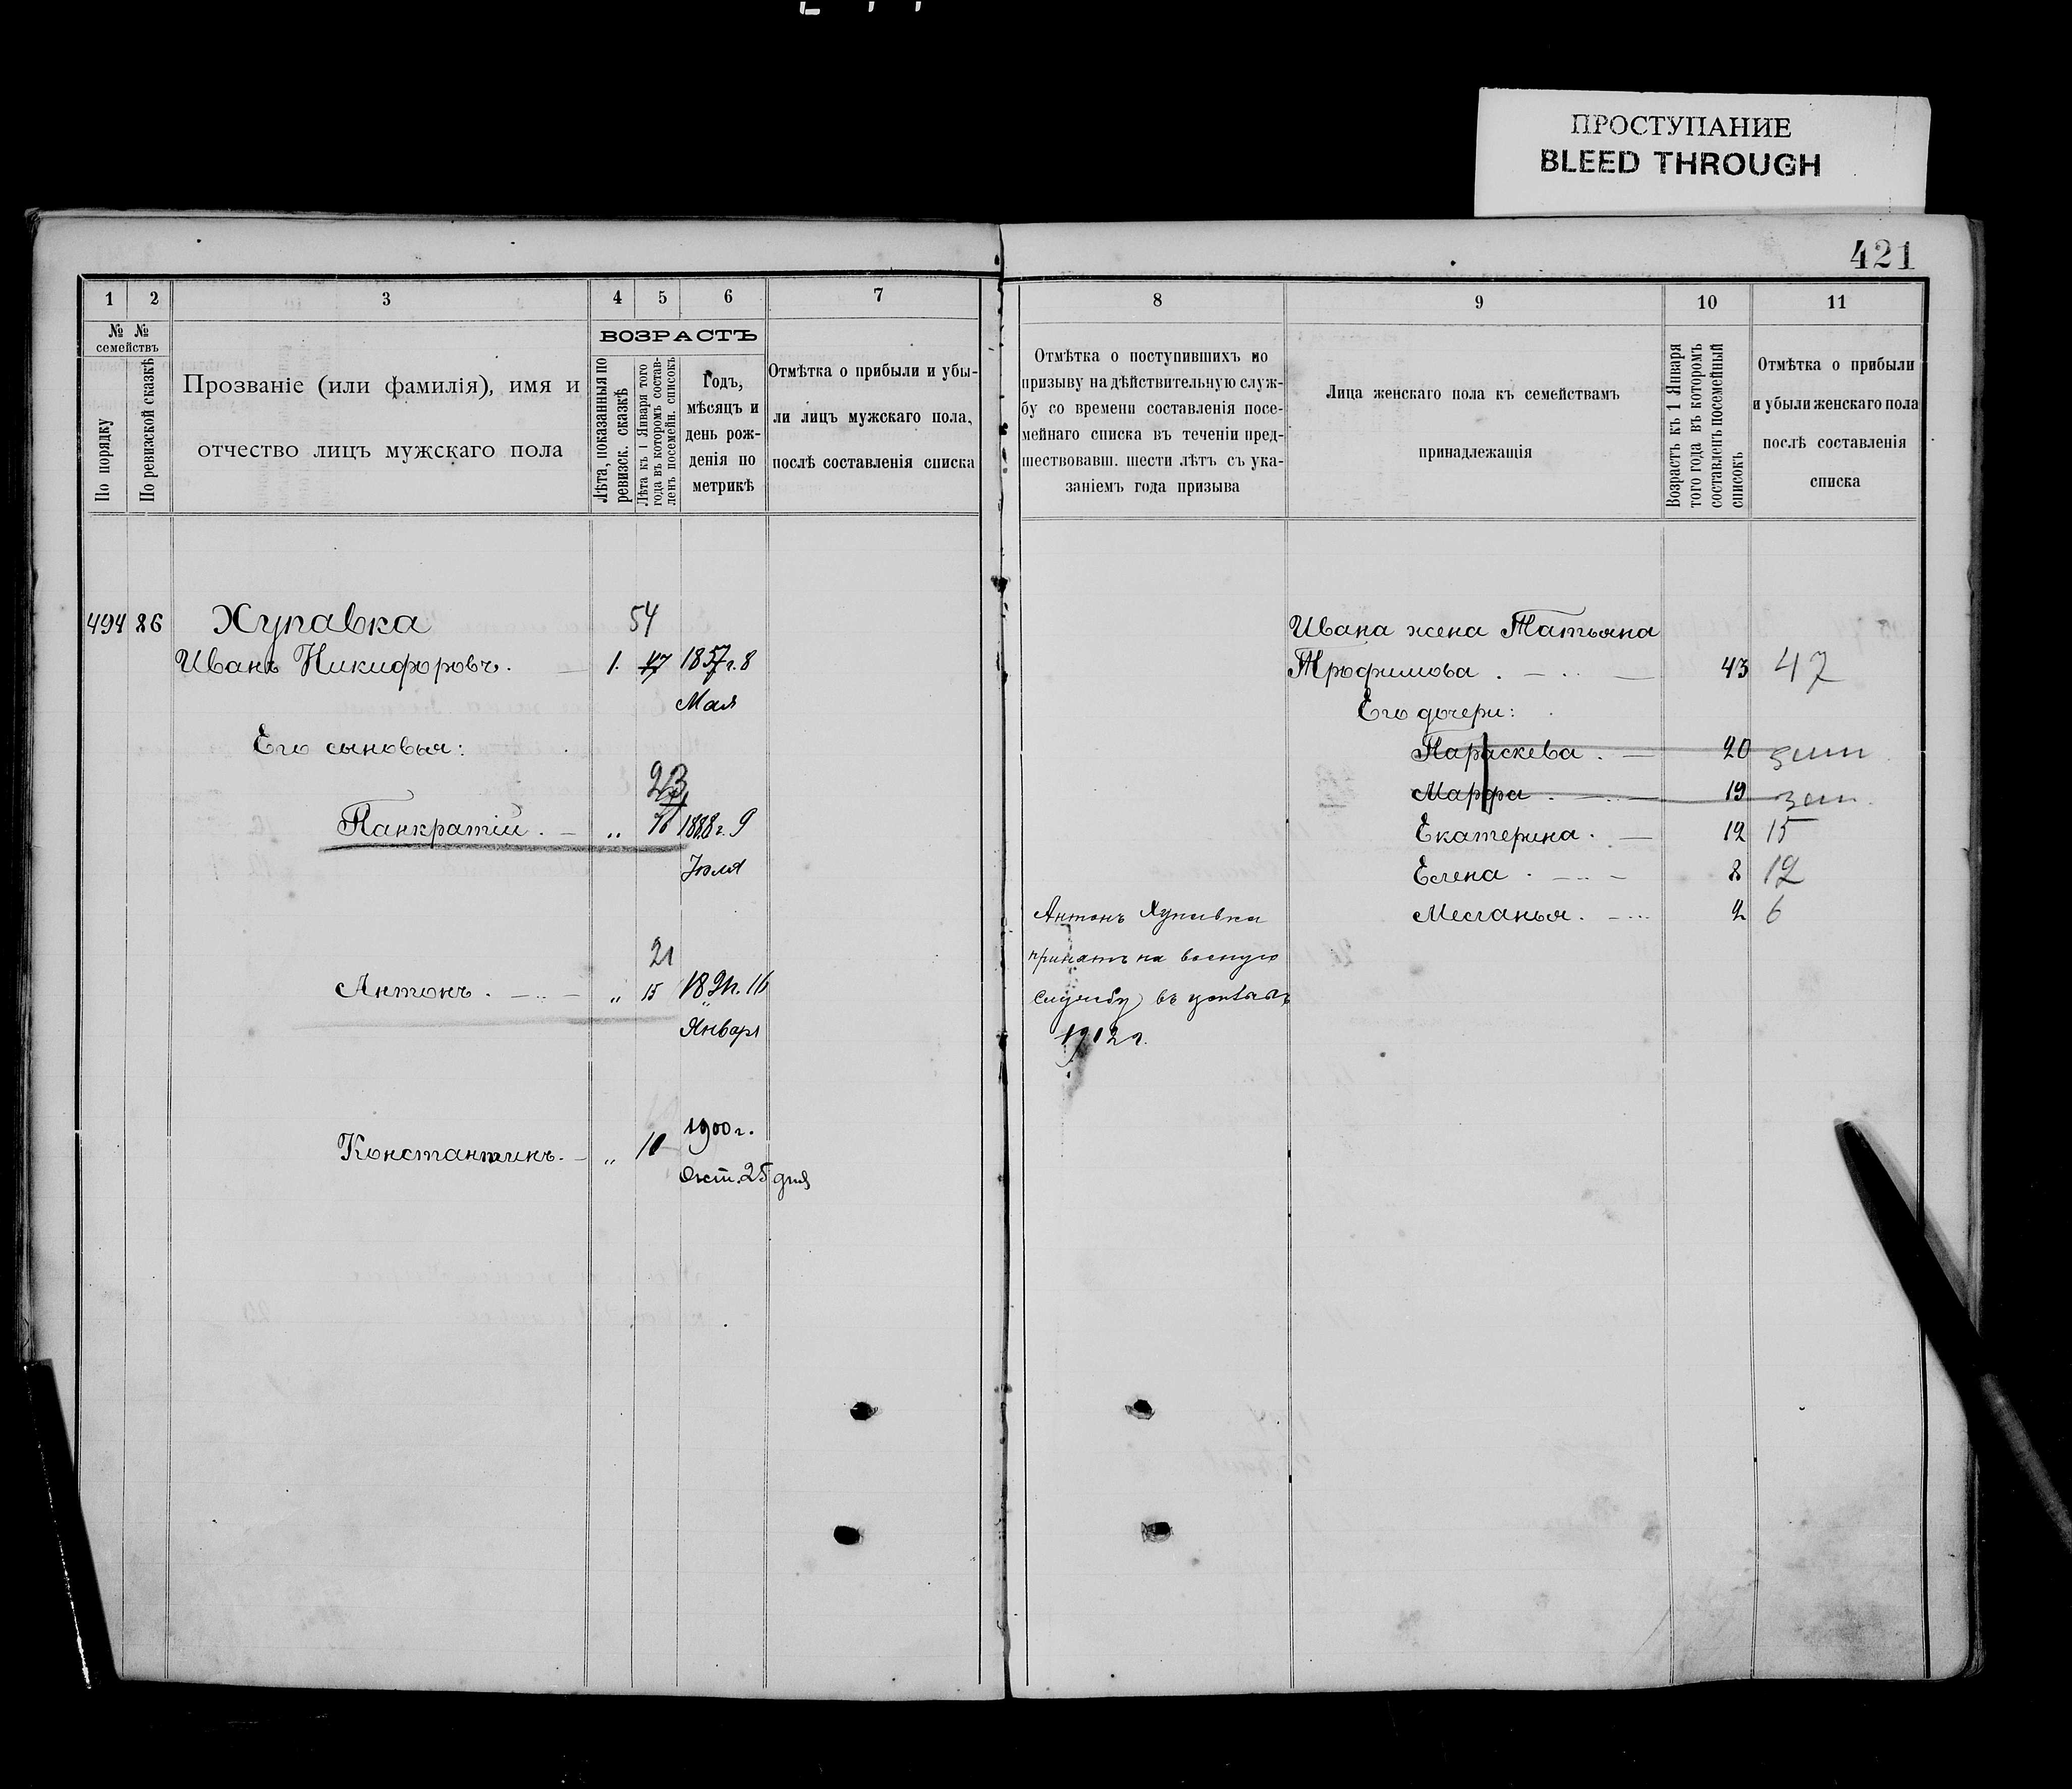 ПРОСТУПАНИЕ
BLEED THROUGH
421
1 2 3 4 5 6 7
№ № семействъ
По порядку
По ревизской сказкѣ
Прозваніе (или фамилія), имя и
отчество лицъ мужскаго пола
ВОЗРАСТЪ
Лѣта, показанныя по
ревизск. сказкѣ
Лѣта къ 1 Января того
года въ которомъ состав-
ленъ посемейн. списокъ
Годъ,
мѣсяцъ и
день рож-
денія по
метрикѣ
Отмѣтка о прибыли и убы-
ли лицъ мужскаго пола,
послѣ составленія списка
494 86 Хупавка 54
Иванъ Никифоровъ. 1. 47 1857г. 8
Мая
Его сыновья:
23
Панкратій. „ 16 1888г. 9
Іюля
21
Антонъ. „ 15 16
Января
1900г.
Константинъ. „ 10
Окт. 25 дня
8 9 10 11
Отмѣтка о поступившихъ по
призыву на дѣйствительную служ-
бу со времени составленія посе-
мейнаго списка въ теченіи пред-
шествовавш. шести лѣтъ съ ука-
заніемъ года призыва
Лица женскаго пола къ семействамъ
принадлежащія
Возрастъ къ 1 Января
того года въ которомъ
составленъ посемейный
списокъ
Отмѣтка о прибыли
и убыли женскаго пола
послѣ составленія
списка
Ивана жена Татьяна
Трофимова. 43 47
Его дочери:
Параскева. 20 зам
Марфа. 19 зам.
Екатерина. 12 15
Елена 8 12
Меланья. 2 6
Антонъ Хупавка
принятъ на военную
службу въ
1912г.